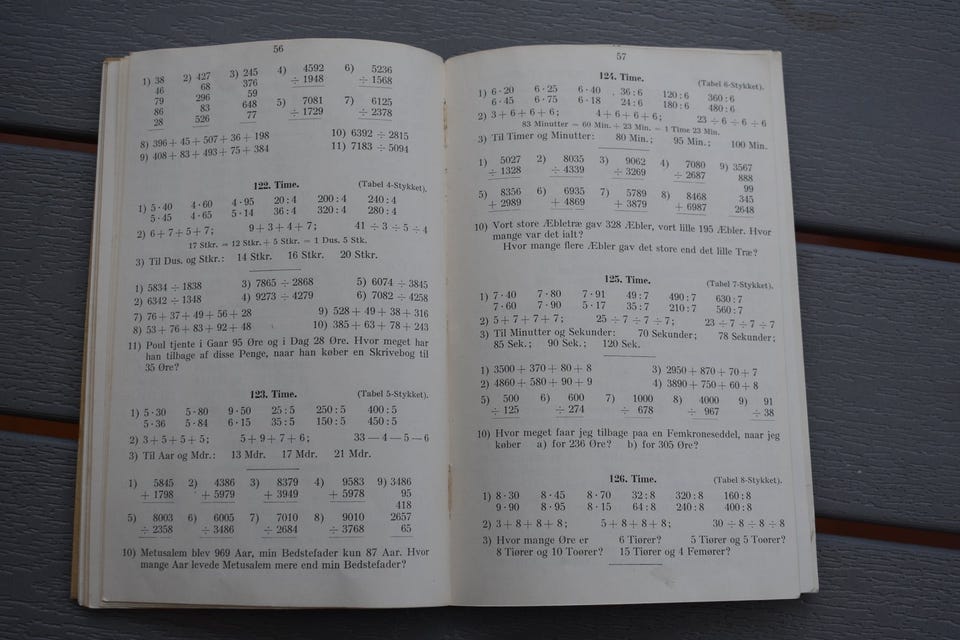 56
1) 38 2) 427 3) 245 4) 4592 6) 5236
46 68 376 ÷ 1948 ÷ 1568
79 296 59
86 83 648 5) 7081 7) 6125
28 526 77 ÷ 1729 ÷ 2378
8) 396 + 45 + 507 + 36 + 198 10) 6392 ÷ 2815
9) 408 + 83 + 493 + 75 + 384 11) 7183 ÷ 5094
122. Time. (Tabel 4-Stykket).
1) 5·40 4·60 4·95 20:4 200:4 240:4
5·45 4·65 5·14 36:4 320:4 280:4
2) 6 + 7 + 5 + 7; 9 + 3 + 4 + 7; 41 ÷ 3 ÷ 5 ÷ 4
17 Stkr. = 12 Stkr. + 5 Stkr. = 1 Dus. 5 Stk.
3) Til Dus. og Stkr.: 14 Stkr. 16 Stkr. 20 Stkr.
1) 5834 ÷ 1838 3) 7865 ÷ 2868 5) 6074 ÷ 3845
2) 6342 ÷ 1348 4) 9273 ÷ 4279 6) 7082 ÷ 4258
7) 76 + 37 + 49 + 56 + 28 9) 528 + 49 + 38 + 316
8) 53 + 76 + 83 + 92 + 48 10) 385 + 63 + 78 + 243
11) Poul tjente i Gaar 95 Øre og i Dag 28 Øre. Hvor meget har
han tilbage af disse Penge, naar han køber en Skrivebog til
35 Øre?
123. Time. (Tabel 5-Stykket).
1) 5·30 5·80 9·50 25:5 250:5 400:5
5·36 5·84 6·15 35:5 150:5 450:5
2) 3 + 5 + 5 + 5; 5 + 9 + 7 + 6; 33 — 4 — 5 — 6
3) Til Aar og Mdr.: 13 Mdr. 17 Mdr. 21 Mdr.
1) 5845 2) 4386 3) 8379 4) 9583 9) 3486
+ 1798 + 5979 + 3949 + 5978 95
418
5) 8003 6) 6005 7) 7010 8) 9010 2657
÷ 2358 ÷ 3486 ÷ 2684 ÷ 3768 65
10) Metusalem blev 969 Aar, min Bedstefader kun 87 Aar. Hvor
mange Aar levede Metusalem mere end min Bedstefader?
57
124. Time. (Tabel 6-Stykket).
1) 6·20 6·25 6·40 36:6 120:6 360:6
6·45 6·75 6·18 24:6 180:6 480:6
2) 3 + 6 + 6 + 6; 4 + 6 + 6 + 6; 23 ÷ 6 ÷ 6 ÷ 6
83 Minutter = 60 Min. + 23 Min. = 1 Time 23 Min.
3) Til Timer og Minutter: 80 Min.; 95 Min.; 100 Min.
1) 5027 2) 8035 3) 9062 4) 7080 9) 3567
÷ 1328 ÷ 4339 ÷ 3269 ÷ 2687 888
99
5) 8356 6) 6935 7) 5789 8) 8468 345
+ 2989 + 4869 + 3879 + 6987 2648
10) Vort store Æbletræ gav 328 Æbler, vort lille 195 Æbler. Hvor
mange var det ialt?
Hvor mange flere Æbler gav det store end det lille Træ?
125. Time. (Tabel 7-Stykket).
1) 7·40 7·80 7·91 49:7 490:7 630:7
7·60 7·90 5·17 35:7 210:7 560:7
2) 5 + 7 + 7 + 7; 25 ÷ 7 ÷ 7 ÷ 7; 23 ÷ 7 ÷ 7 ÷ 7
3) Til Minutter og Sekunder: 70 Sekunder; 78 Sekunder;
85 Sek.; 90 Sek.; 120 Sek.
1) 3500 + 370 + 80 + 8 3) 2950 + 870 + 70 + 7
2) 4860 + 580 + 90 + 9 4) 3890 + 750 + 60 + 8
5) 500 6) 600 7) 1000 8) 4000 9) 91
÷ 125 ÷ 274 ÷ 678 ÷ 967 ÷ 38
10) Hvor meget faar jeg tilbage paa en Femkroneseddel, naar jeg
køber a) for 236 Øre? b) for 305 Øre?
126. Time. (Tabel 8-Stykket).
1) 8·30 8·45 8·70 32:8 320:8 160:8
9·90 8·95 8·15 64:8 240:8 400:8
2) 3 + 8 + 8 + 8; 5 + 8 + 8 + 8; 30 ÷ 8 ÷ 8 ÷ 8
3) Hvor mange Øre er 6 Tiører? 5 Tiører og 5 Toører?
8 Tiører og 10 Toører? 15 Tiører og 4 Femører?